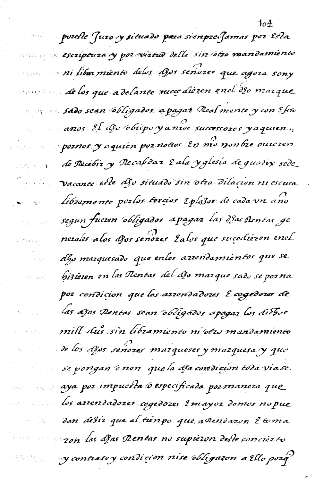 104
por este Juro y situado para siempre Jamas por esta
escriptura y por virtud della sin otro mandamiento
ni libramiento de los dhos señores que agora son y
de los que adelante suçedieren en el dho marque
sado sean obligados a pagar Realmente y con efeto
a nos El dho obispo y a nros sucessores y a quien
por nos y a quien por nosotros En nro nombre ouieren
de Recibir y Recaudar E a la yglesia de guadix sede
vacante este dho situado sin otro dilacion ni escusa
libramento por los tercios E plazos de cada un año
segun fueren obligados a pagar las dhas Rentas ge
nerales a los dhos señores E a los que suçedieren en el
dho marquesado que en los arrendamientos que se
hizieren en las Rentas del dho marquesado se ponga
por condicion que los arrendadores E cogedores de
las dhas Rentas sean obligados a pagar los dichos
mill dus sin libramiento ni otro mandamiento
de los dhos señores marqueses y marquesa y que
se pongan o non que la dha condicion todavia se
aya por impuesta o especificada por manera que
los arrendadores cogedores E mayordomos no pue
dan dezir que al tienpo que arrendaron E toma
ron las dhas Rentas no supieron deste concierto
y contrato y condicion ni se obligaron a Ello porq